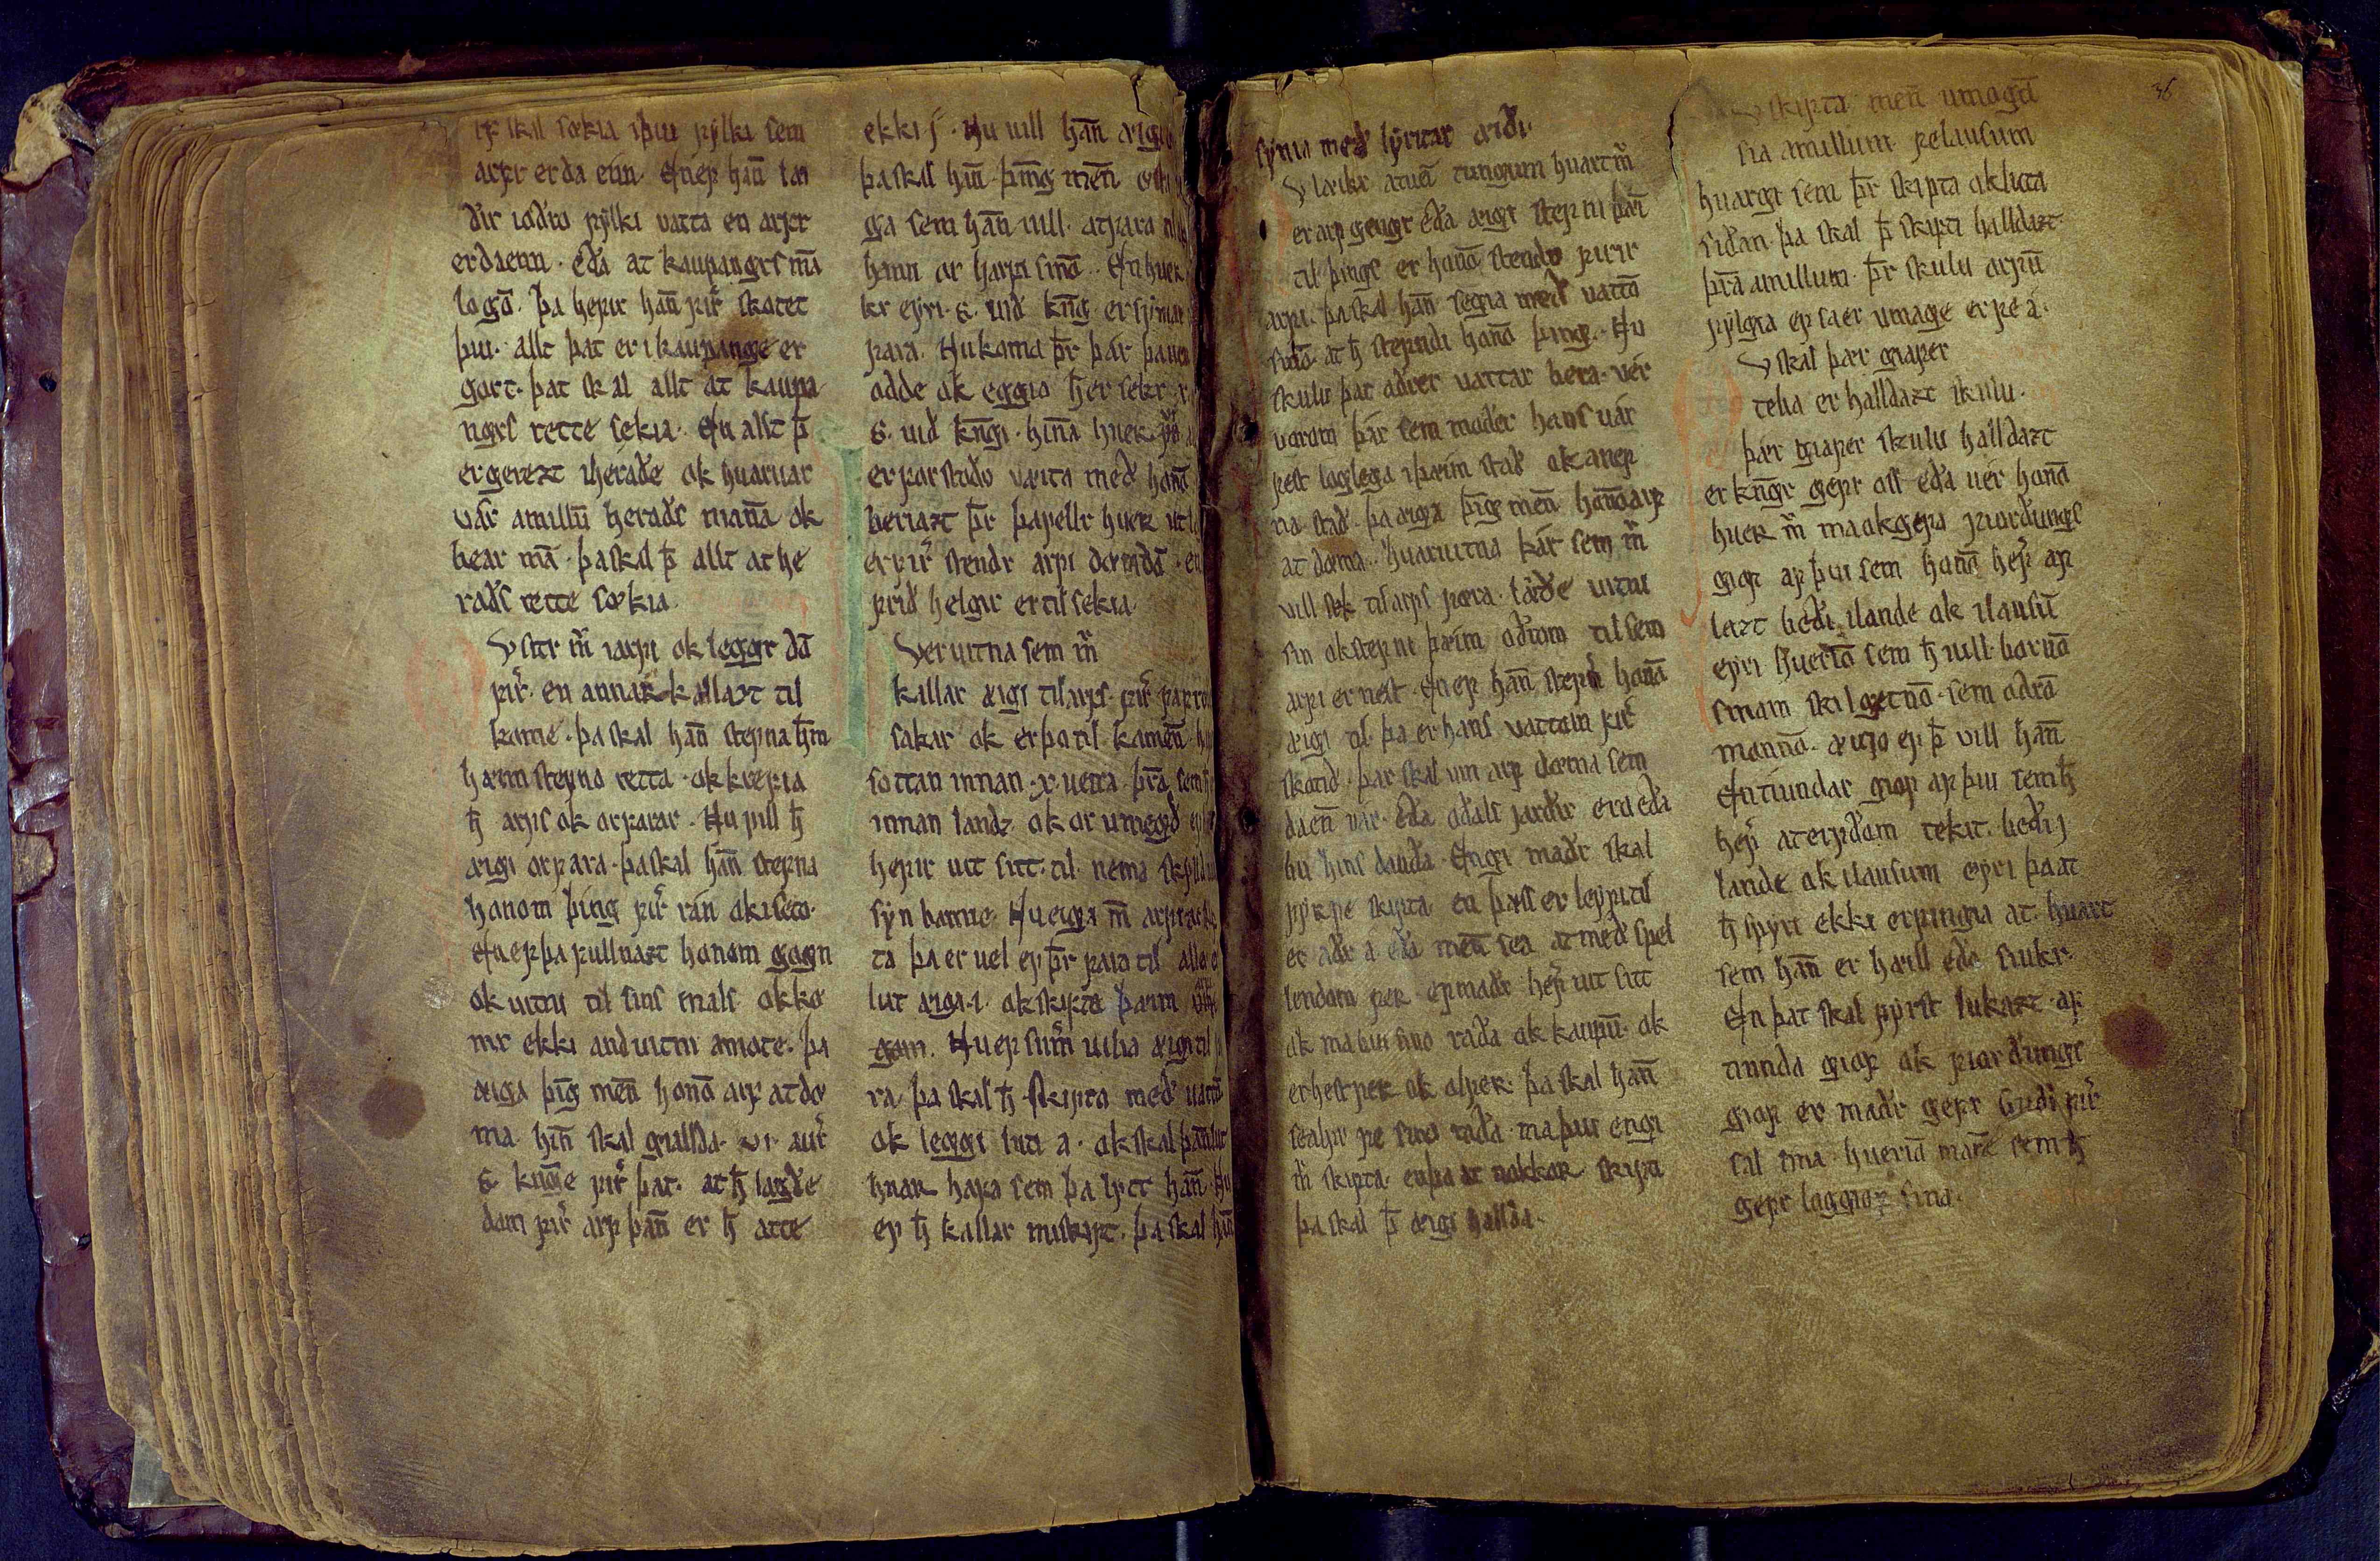 skal sœkia iþui fylki sem
arfr erda eiɴ. En ef hañ læi
dir iodro fylki vatta en arfr
erdaenn. eða at kaupangrſ mā
logā. þa hefir hañ fir̃ ſkotet
þui. allt þat er ikaupange er
gort. þat ſkal allt at kaupa
ngrſ rette sekia. En allt þ̄
ergerezt iheraðe ok huaruar
var amillū heraðſ mana̅ ok
bear mā. þaſkal þ̄ allt at he
raðſ rette sœkia
U ſitr m̃ iarfi ok leggr dā
fir̃. en annaʀ kallazt til
kome. þaſkal hañ ſtefna ħm
haim ſtefno retta. ok krefia
ħ arfſ ok orfarar. Nu vill ħ
æigi orfara. þaſkal hañ ſtefna
honom þing fir̃ ran ok iseto.
En ef þa fullnazt honom gogn
ok uitni til ſinſ malſ okko
mr ekki anduitni amote. þa
æiga þīg meñ honō arf at dø
ma. hiñ ſkal giallda. vi. aur̃
s. kunge fir̃ þat. at ħ lagðe
dam fir̃ arf þañ er ħ atte
ekki j. Nu uill hañ æigi
þaſkal hañ þīng meñ
ga sem hañ uill. atfara
hann or harfu ſinō. En hueʀ
kr eyri. s. uid kn̄g. er ſyniar
fara. Nukoma þr̄ þar
odde ok eggio ħer sekr
s. uid kn̄gi. hina̅ hueʀ
er forſtodo varita med honō
beriazt þr̄ þafellr hueʀ
er fir̃ ſtendr arfi dœmdā
frid helgir ertil sekia
Veruitna sem m̃
kallar æigi til arfſ fir̃
ſakar ok er þo til kameñ
ſottan innan. x. uetra. þr̄a
innan landz. ok or umegd
hefir uit ſitt. til. nema
ſyn banne. Nu eiga m̃ arf
ta þa er uel ef þr̄ fara til
lut æiga. i. okſkipta þæim
gom. Nu ef ſum̃ uilia æigi til
ra þa ſkal ħ ſkipta med
ok leggi luti a. okſkal
huaʀ hafa sem þa lytt hañ
ef ħ kallar miſkipt. þa ſkal hañ
ſynia með lyritar æiði.
U læikr atuā tungum huart m̃
er arf gengr eða æigi ſtefni þæi
til þingſ er honō ſtendr firir
arfi. þaſkal hañ segia með vatta
ſinō. at ħ ſtefndi honō þing. Nu
ſkulu þat adrer vattar bera. vér
varom þár sem moder hanſ vár
feſt loglega iþæim ſtað ok anef
na ſtað. þa æiga þīg meñ honō arf
at dœma. Huaruitna þár sem m̃
vill ſœk til arfſ færa. læiðe uitni
ſin okſtefni þæim oðrom til sem
arfi er neſt. En ef hañ ſtefñ honō
æigi til þa er hanſ vattom fir̃
ſkotið. þar ſkal um arf dœma sem
daeñ var. eða odalſ jarðir eru eða
bu hinſ dauða. Engi maðr ſkal
fyr fe ſkipta en þaſſ er leyfi til
er aðr a eða meñ sea at með ſpel
lundom fer. ef maðr hef̃ uit ſitt
ok ma bui ſino raða ok kaupū. ok
er heſtfeʀ ok olfeʀ. þa ſkal hañ
sealfr fe ſino raða. ma þui engi
m̃ ſkipta. en þo at nokkoʀ ſkipti
þa ſkal þ̄ æigi hallda.
U ſkipta meñ umoga
ſia amillum felauſum
huargi sem þr̄ ſkipta ok luta
ſiðan. þa ſkal þ̄ ſkipti halldazt.
þr̄a amillum. þr̄ ſkulu arfū
fylgia ef ſa er umage er fe á.
U ſkal þær giafer
telia er halldazt ſkulu.
þár giafer ſkulu halldazt
er kn̄gr gefr oſſ eða uér honō
hueʀ m̃ ma okgefa fiorðungſ
giof af þui sem honō hef̃ af
lazt beði ilande ok ilauſū
eyri hueriō sem ħ uill. bornō
ſinom ſkilgetnō. sem odrō
monnō. æigo ef þ̄ vill hañ
En tiundar giof af þui sem ħ
hef̃ aterfðom tekit. beði j
lande ok ilauſum eyri þa at
ħ ſpyri ekki erfingia at. huart
sem hañ er hæill eða ſiukr.
En þat ſkal fyrſt lukazt. af
tiunda giof ok fiorðungſ
giof er maðr gefr Guði fir̃
ſál ſina. hueriō manne sem ħ
gefr loggiof ſina.
36